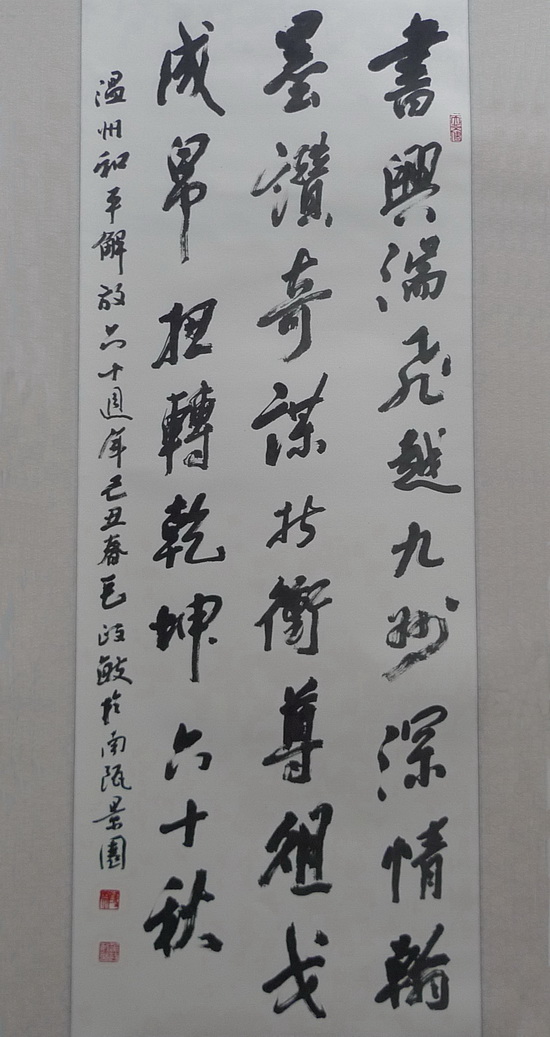 書興湍飛越九州深情翰
墨讚奇謀折衝尊俎戈
成帛扭轉乾坤六十秋
温州和平解放六十週年己丑春毛政敏於南甌景園